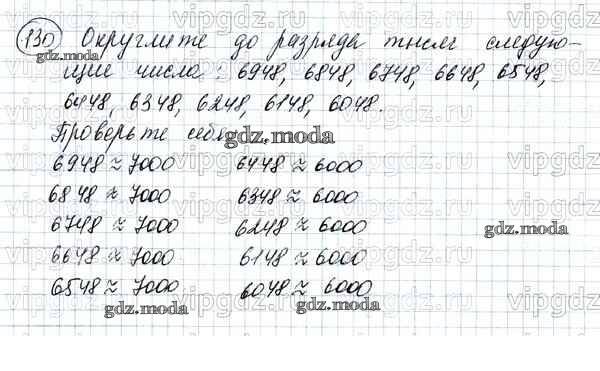 130 Округлите до разряда тысяч следую-
щие числа: 6948, 6848, 6748, 6648, 6548,
6448, 6348, 6248, 6148, 6048.
Проверьте себя.
6948 ≈ 7000 6448 ≈ 6000
6848 ≈ 7000 6348 ≈ 6000
6748 ≈ 7000 6248 ≈ 6000
6648 ≈ 7000 6148 ≈ 6000
6548 ≈ 7000 6048 ≈ 6000
gdz.moda
gdz.moda
gdz.moda
gdz.moda
gdz.moda
vipgdz.ru